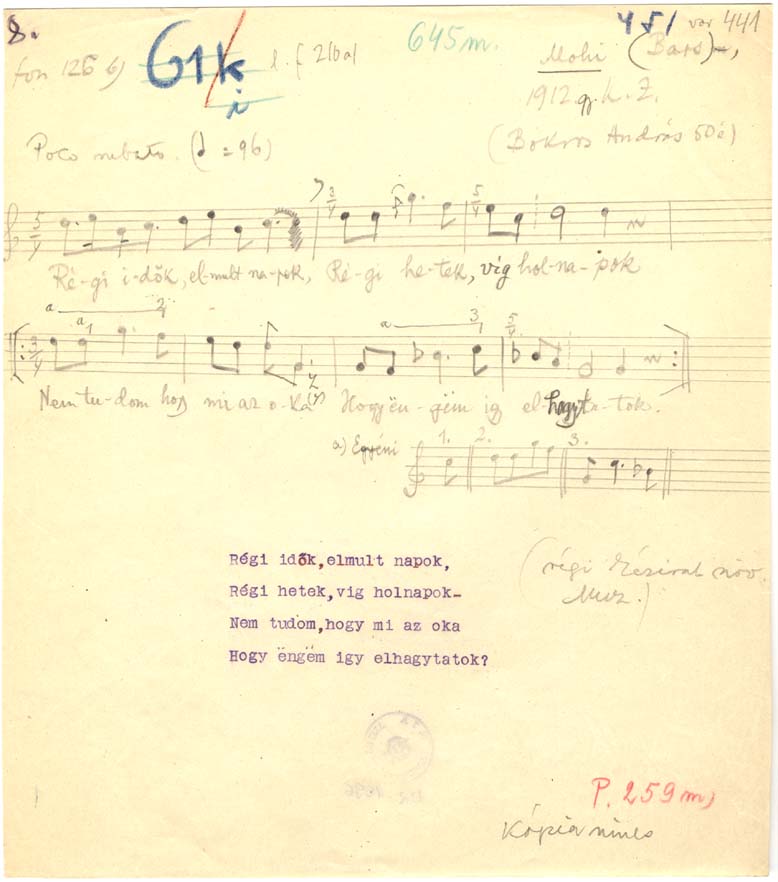 8.
fon 126 b) 61/k l. f 216a) 645m. 451 var 441
i
Mohi (Bars),
1912. gy. K. Z.
(Bokros András 50é)
Poco rubato. (♩ = 96)
5/4 3/4 5/4
Ré-gi i-dők, el-mult na-pok, Ré-gi he-tek, víg hol-na-pok
a 2
a 1 a 3
3/4 5/4
Nem tu-dom hogy mi az o-ka Hogy ën-gëm igy el-hagyta-tok.
a) Egyéni 1. 2. 3.
Régi idők,elmult napok,
Régi hetek,vig holnapok-
Nem tudom,hogy mi az oka
Hogy ëngëm igy elhagytatok?
(régi kézirat növ.
Muz.)
P. 259m)
Kópia nincs